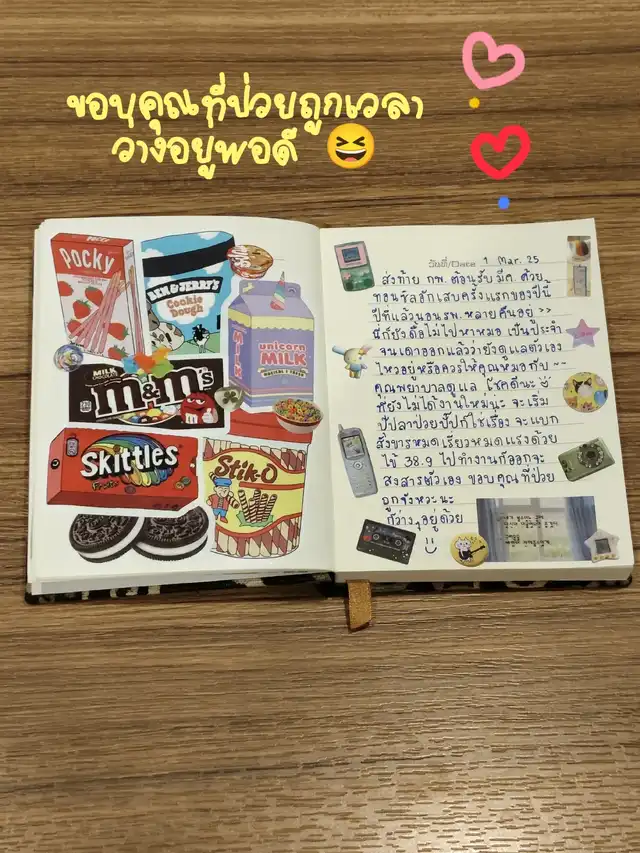 ขอบคุณที่ป่วยถูกเวลา
ว่างอยู่พอดี
Pocky
BEN & JERRY'S
Cookie
Dough
unicorn
MILK
MILK
MILK
CHOCOLATE
m&m's
Skittles
Fruits
Stik-O
วันที่/Date 1 Mar. 25
ส่งท้าย กพ. ต้อนรับ มีค. ด้วย
ทอนซิลอักเสบครั้งแรกของปีนี้
ปีที่แล้วนอนรพ. หลายคืนอยู่ >>
นี่ก็ยังดื้อไม่ไปหาหมอ เป็นประจำ
จนเดาออกแล้วว่ายังดูแลตัวเอง
ไหวอยู่หรือควรให้คุณหมอกับ ~~
คุณพยาบาลดูแล โชคดีนะ
ที่ยังไม่ได้งานใหม่นะ จะเริ่ม
ปั๊ปลาป่วยปั๊ปก็ใช่เรื่อง จะแบก
สังขารหมดเรี่ยวหมดแรงด้วย
ไข้ 38.9 ไปทำงานก็ออกจะ
สงสารตัวเอง ขอบคุณที่ป่วย
ถูกจังหวะนะ
ก็ว่างๆอยู่ด้วย